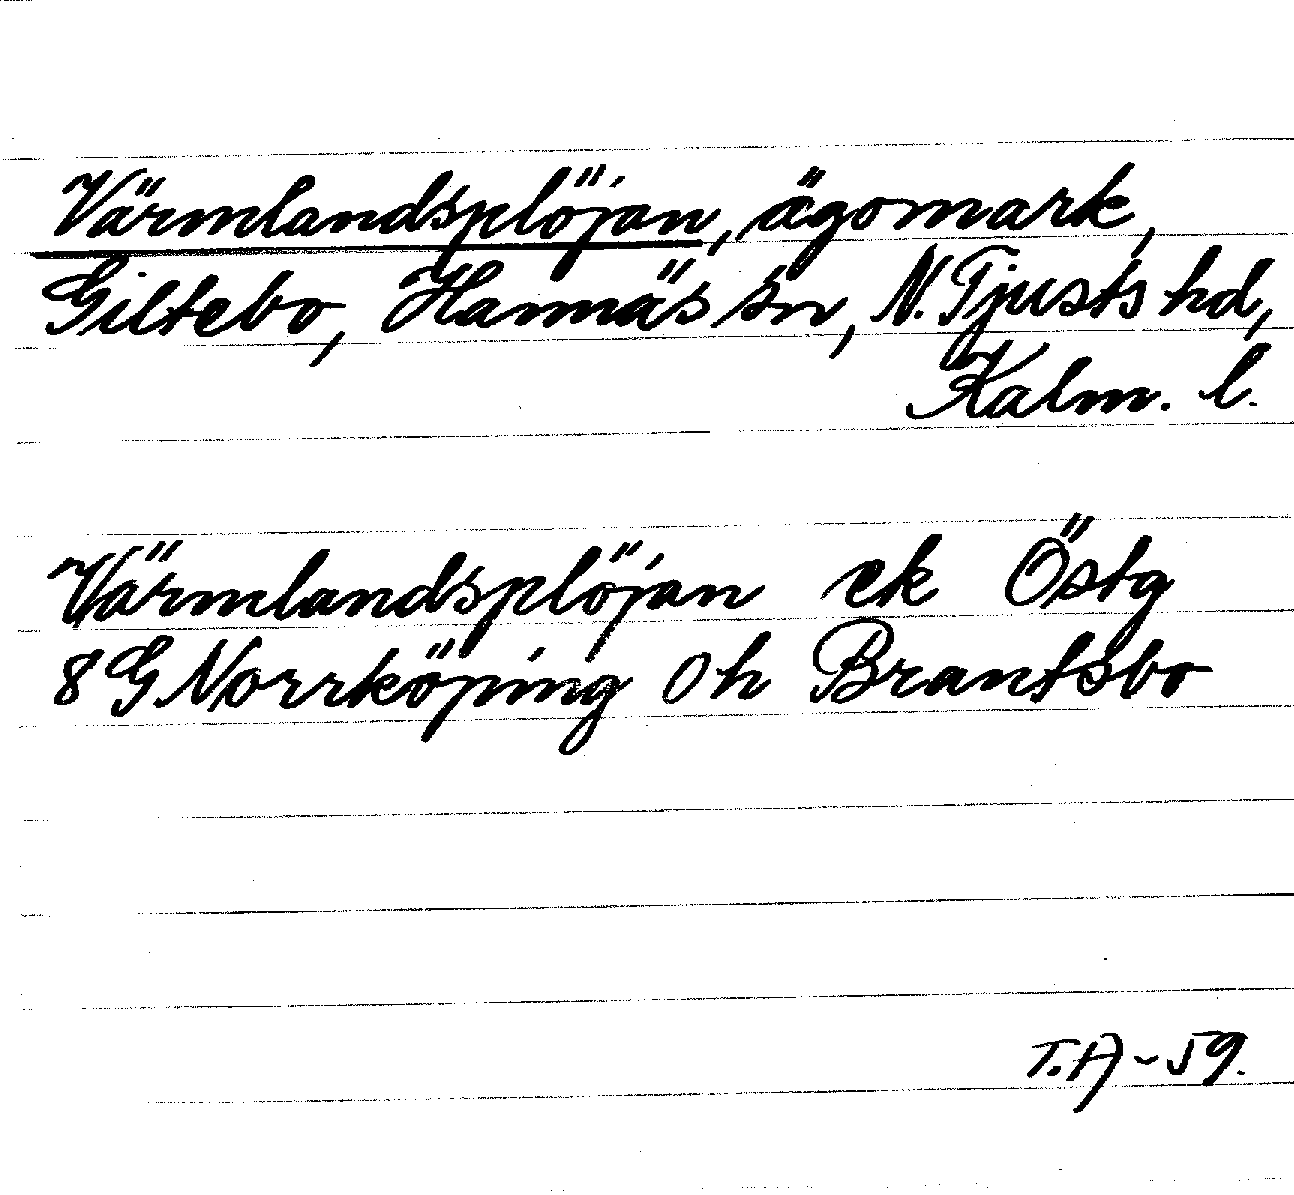 Värmlandsplöjan, ägomark,
Giltebo, Hannäs sn, N. Tjusts hd,
Kalm. l.
Värmlandsplöjan ek Östg
8G Norrköping 0h Brantsbo
T.A-59.